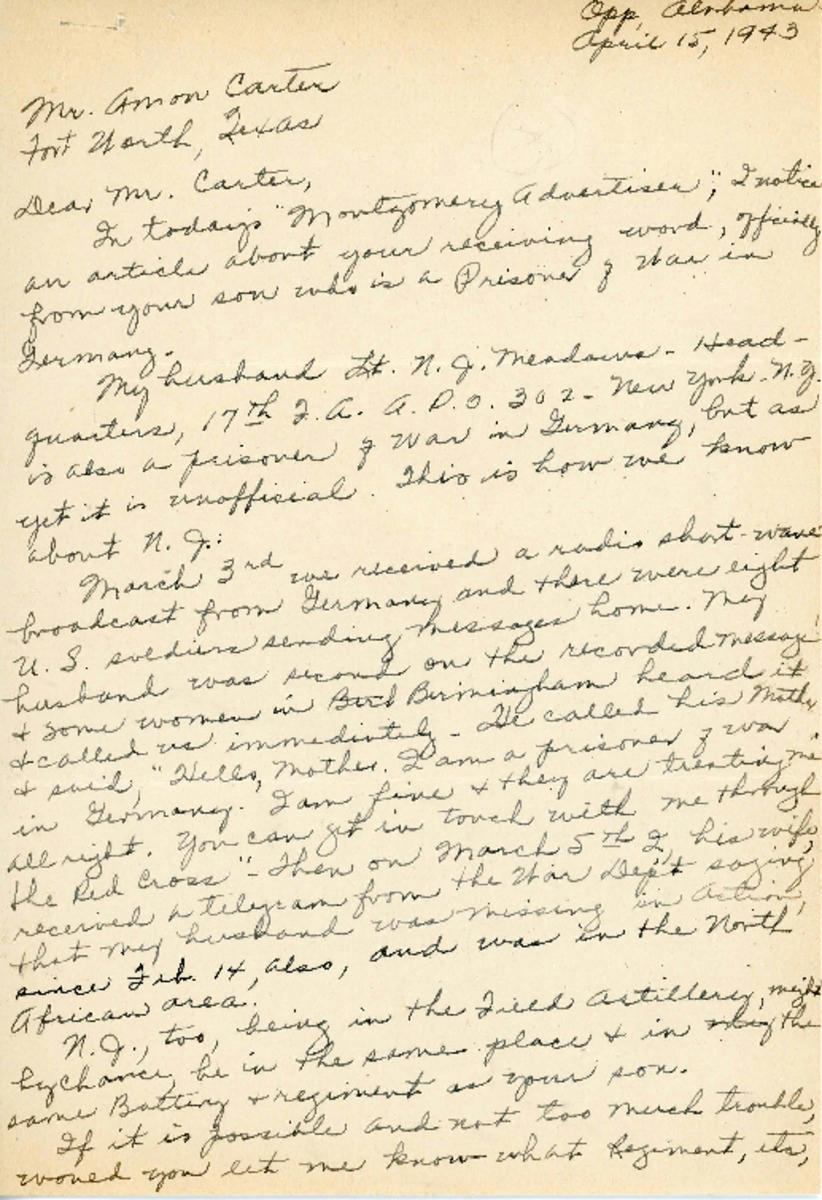 Opp, Alabama
April 15, 1943
Mr. Amon Carter
Fort Worth, Texas
Dear Mr. Carter,
In today's "Montgomery Advertiser", I notice
an article about your receiving word, officially
from your son who is a Prisoner of War in
Germany.
My husband Lt. N. J. Meadows - Head-
quarters, 17th F. A. A. P. O. 302 - New York - N.Y.
is also a prisoner of War in Germany, but as
yet it is unofficial. This is how we know
about N. J.:
March 3rd we received a radio short-wave
broadcast from Germany and there were eight
U. S. soldiers sending messages home. My
husband was second on the recorded message
& some women in Birmingham heard it
& called us immediately - He called his Mother
& said, "Hello, Mother. I am a prisoner of war
in Germany. I am fine & they are treating me
all right. You can get in touch with me through
the Red Cross" - Then on March 5th I, his wife,
received a telegram from the War Dep't saying
that my husband was missing in action,
since Feb. 14, also, and was in the North
African area.
N. J., too, being in the Field Artillery, might
by chance, be in the same place & in the
same Battery & regiment as your son.
If it is possible and not too much trouble,
would you let me know what Regiment, etc.,